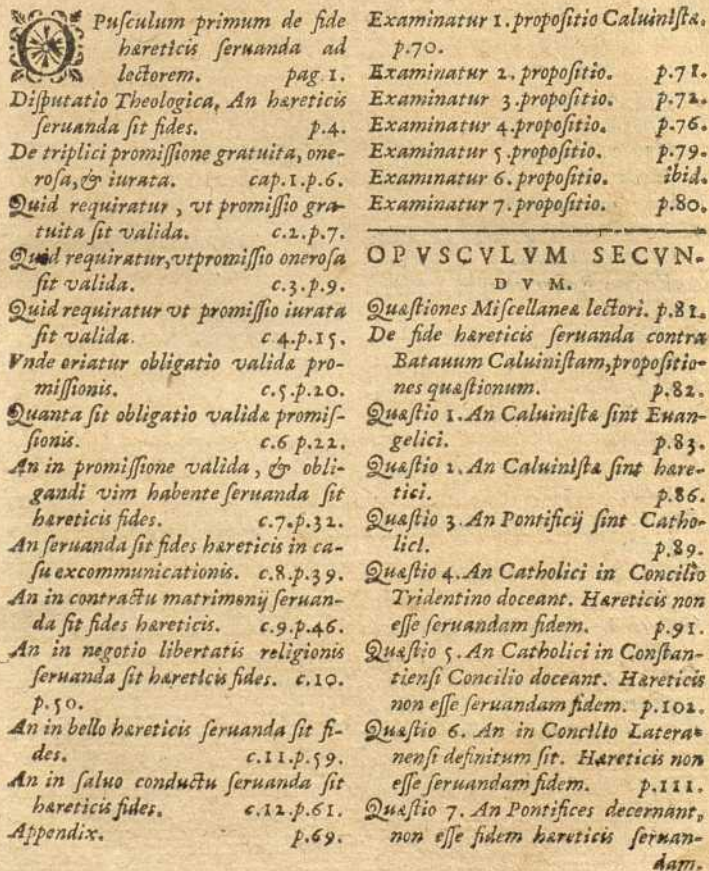 OPuſculum primum de fide
hæreticis ſeruanda ad
lectorem. pag 1.
Diſputatio Theologica, An hæreticis
ſeruanda ſit fides. p.4.
De triplici promiſſione gratuita, one-
roſa, & iurata. cap.1.p.6.
Quid requiratur, vt promiſſio gra-
tuita ſit valida. c.2.p.7.
Quid requiratur, vt promiſſio oneroſa
ſit valida. c.3.p.9.
Quid requiratur vt promiſſio iurata
ſit valida. c 4.p.15.
Vnde oriatur obligatio validæ pro-
miſſionis. c.5.p.20.
Quanta ſit obligatio validæ promiſ-
ſionis. c.6 p.22.
An in promiſſione valida, & obli-
gandi vim habente ſeruanda ſit
hæreticis fides. c.7.p.32.
An ſeruanda ſit fides hæreticis in ca-
ſu excommunicationis. c.8.p.39.
An in contractu matrimonij ſeruan-
da ſit fides hæreticis. c.9.p.46.
An in negotio libertatis religionis
ſeruanda ſit hæreticis fides. c.10.
p.50.
An in bello hæreticis ſeruanda ſit fi-
des. c.11.p.59.
An in ſaluo conductu ſeruanda ſit
hæreticis fides. c.12.p.61.
Appendix. p.69.
Examinatur 1. propoſitio Caluiniſtæ.
p.70.
Examinatur 2. propoſitio. p.71.
Examinatur 3. propoſitio. p.72.
Examinatur 4. propoſitio. p.76.
Examinatur 5. propoſitio. p.79.
Examinatur 6. propoſitio. ibid.
Examinatur 7. propoſitio. p.80.
OPVSCVLVM SECVN-
DVM.
Quæſtiones Miſcellaneæ lectori. p.81.
De fide hæreticis ſeruanda contra
Batauum Caluiniſtam, propoſitio-
nes quæſtionum. p.82.
Quæſtio 1. An Caluiniſtæ ſint Euan-
gelici. p.83.
Quæſtio 2. An Caluiniſtæ ſint hære-
tici. p.86.
Quæſtio 3. An Pontificij ſint Catho-
lici. p.89.
Quæſtio 4. An Catholici in Concilio
Tridentino doceant. Hæreticis non
eſſe ſeruandam fidem. p.91.
Quæſtio 5. An Catholici in Conſtan-
tienſi Concilio doceant. Hæreticis
non eſſe ſeruandam fidem. p.102.
Quæſtio 6. An in Concilio Latera-
nenſi definitum ſit. Hæreticis non
eſſe ſeruandam fidem. p.111.
Quæſtio 7. An Pontifices decernant,
non eſſe fidem hæreticis ſeruan-
dam.